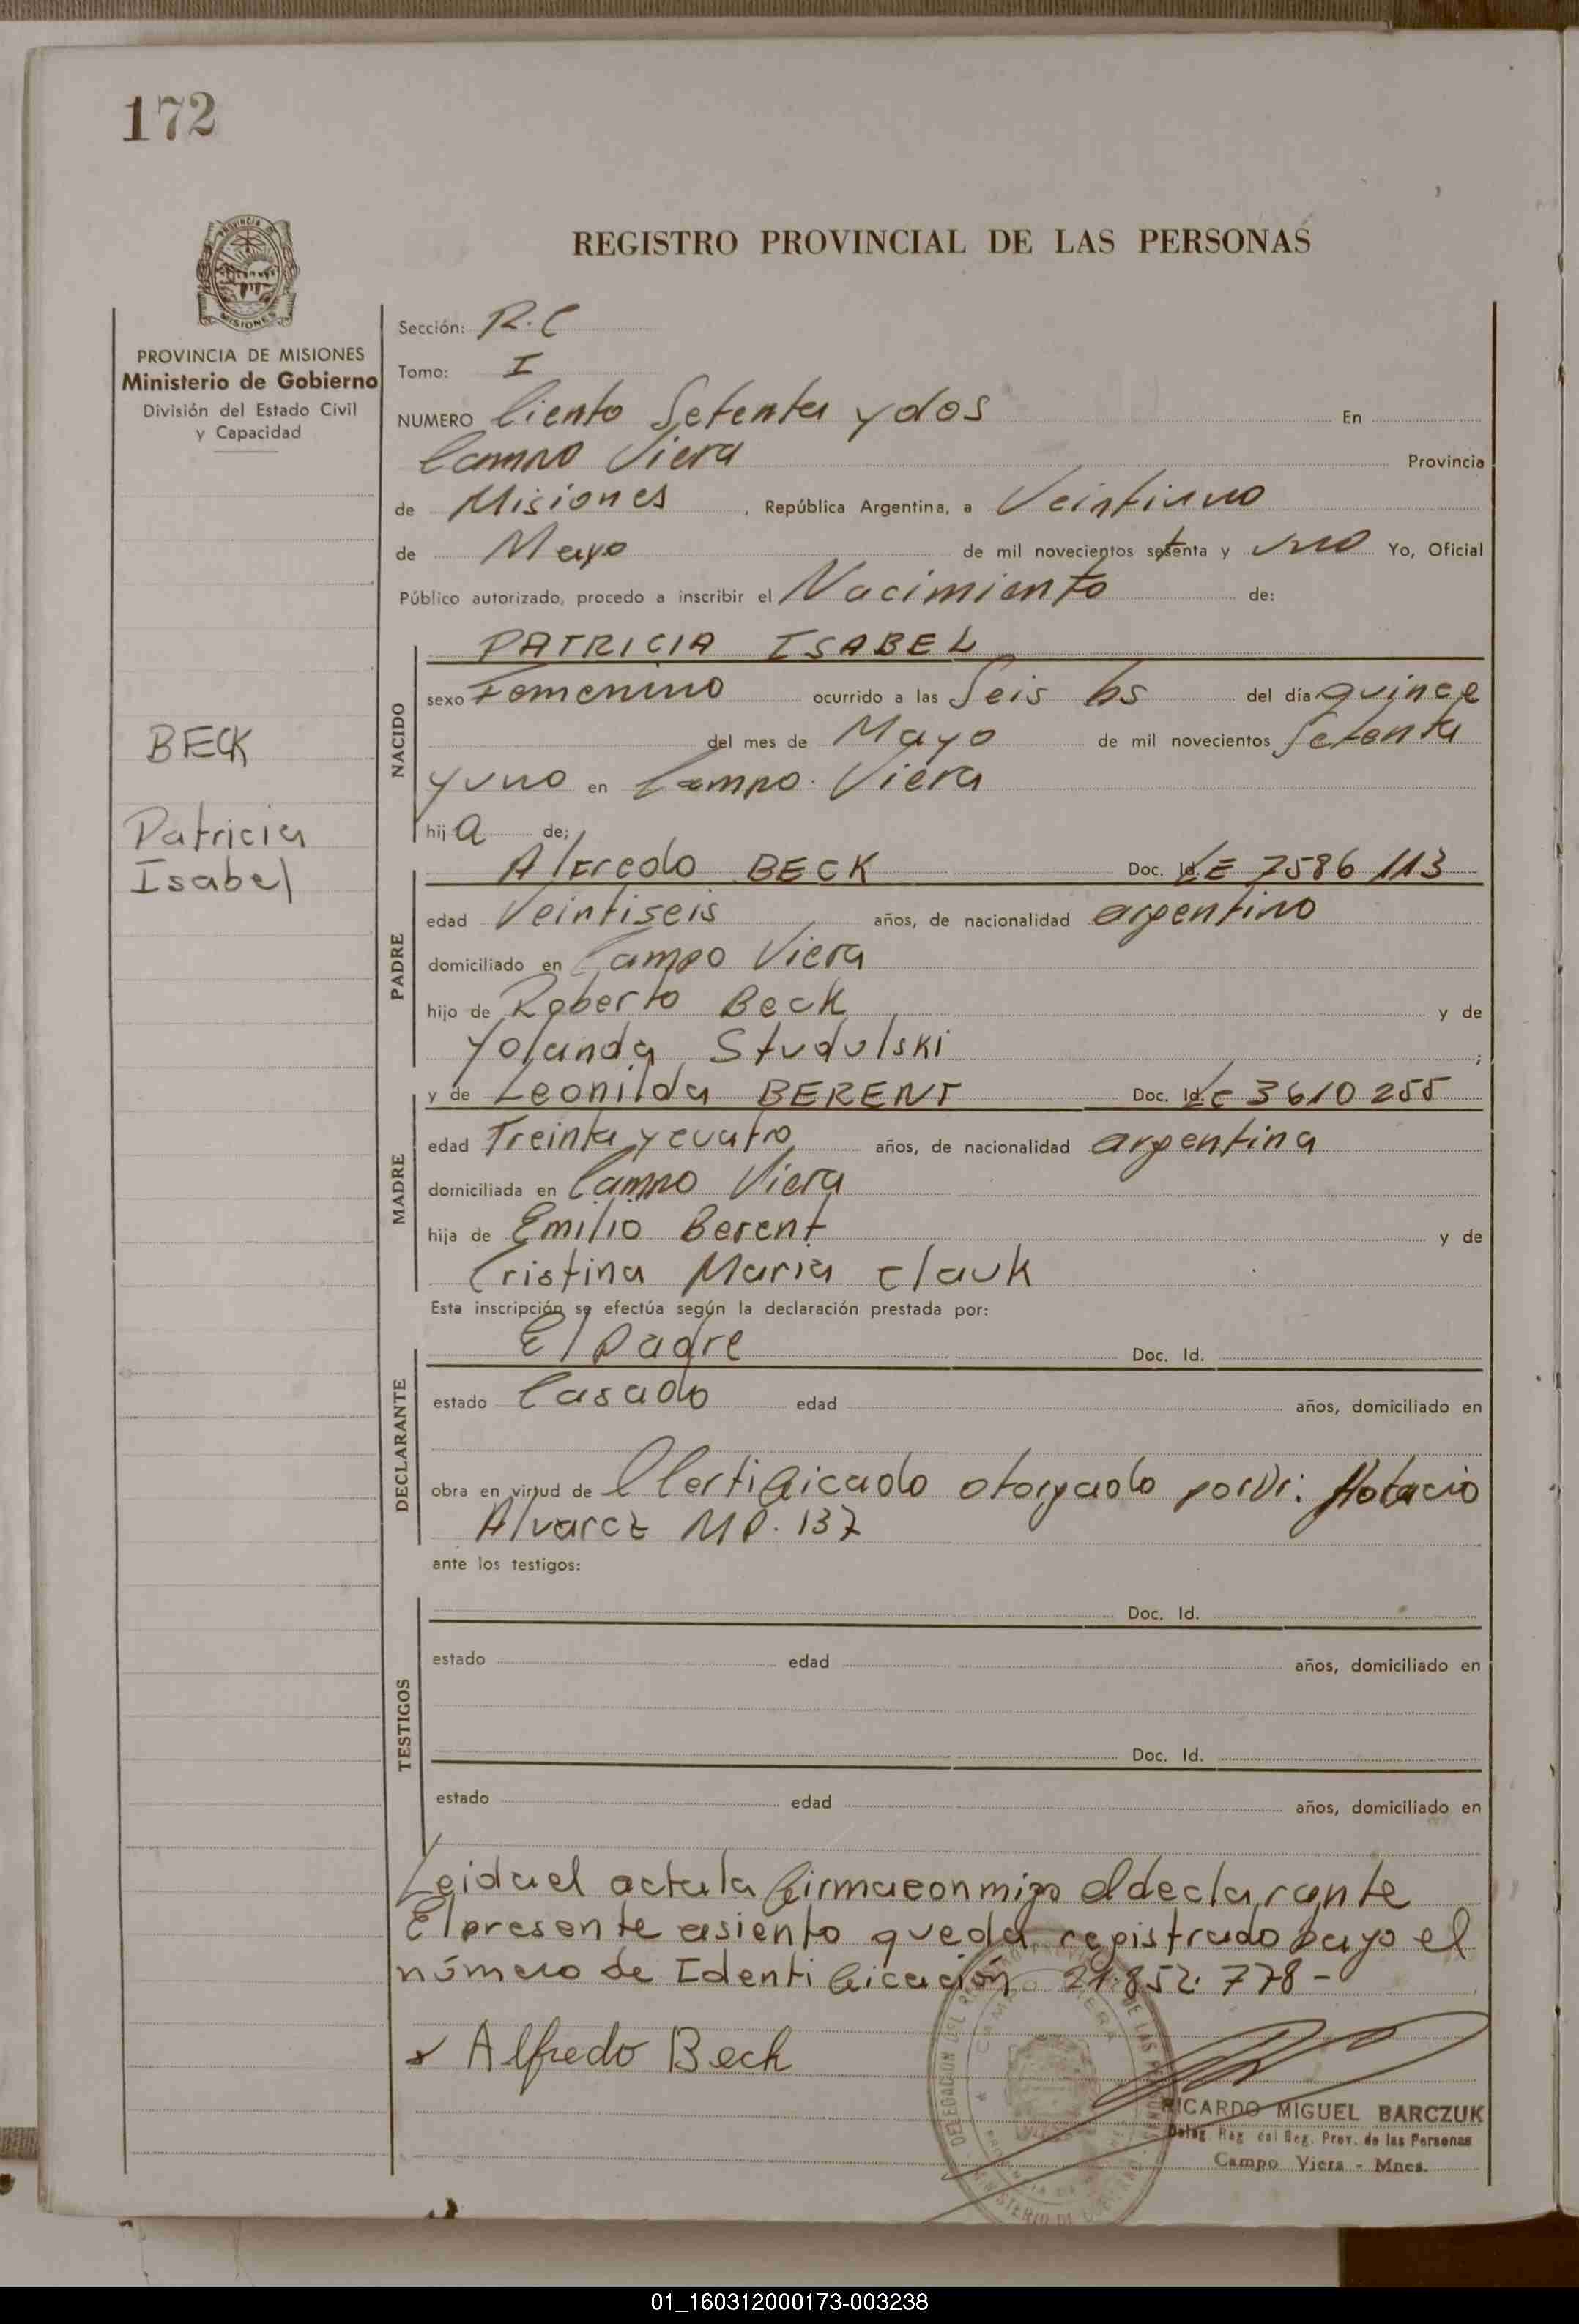 172
REGISTRO PROVINCIAL DE LAS PERSONAS
PROVINCIA DE MISIONES
Ministerio de Gobierno
División del Estado Civil
y Capacidad
BECK
Patricia
Isabel
Sección: R.C
Tomo: I
NUMERO Ciento Setenta y dos En
Campo Viera Provincia
de Misiones, República Argentina, a Veintiuno
de Mayo de mil novecientos setenta y uno Yo, Oficial
Público autorizado, procedo a inscribir el Nacimiento de:
NACIDO
PATRICIA ISABEL
sexo Femenino ocurrido a las Seis hs del día quince
del mes de Mayo de mil novecientos Setenta
y uno en Campo Viera
hij a de;
PADRE
Alfredo BECK Doc. Id. LE 7586113
edad Veintiseis años, de nacionalidad argentino
domiciliado en Campo Viera
hijo de Roberto Beck y de
Yolanda Studulski ;
MADRE
y de Leonilda BERENT Doc. Id. LC 3610255
edad Treinta y cuatro años, de nacionalidad argentina
domiciliada en Campo Viera
hija de Emilio Berent y de
Cristina Maria Clauk
Esta inscripción se efectúa según la declaración prestada por:
DECLARANTE
El Padre Doc. Id.
estado Casado edad años, domiciliado en
obra en virtud de Certificado otorgado por Dr: Horacio
Alvarez MP. 137
ante los testigos:
TESTIGOS
Doc. Id.
estado edad años, domiciliado en
Doc. Id.
estado edad años, domiciliado en
Leida el acta la firma conmigo el declarante
El presente asiento queda registrado bajo el
número de Identificación 21.852.778-
x Alfredo Beck
RICARDO MIGUEL BARCZUK
Deleg. Reg. del Reg. Prov. de las Personas
Campo Viera - Mnes.
01_160312000173-003238